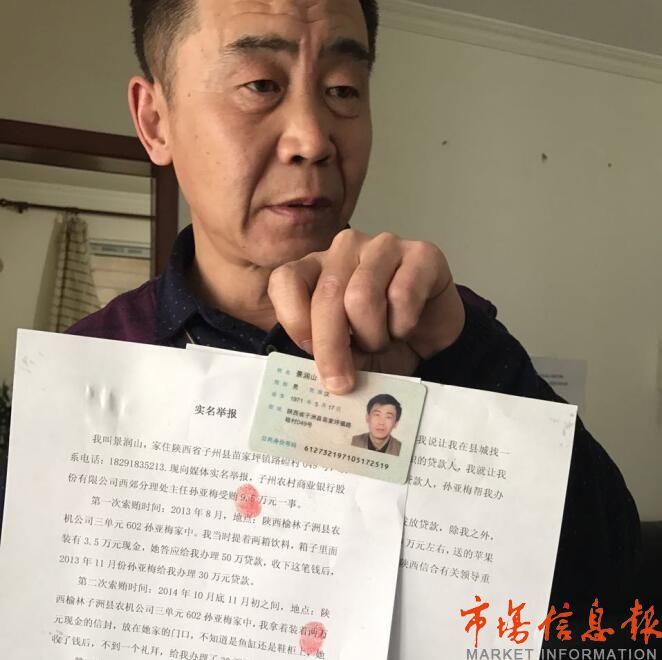 姓名 景润山
性别 男 民族 汉
出生 1971 年 5 月 17 日
住址 陕西省子洲县苗家坪镇路
砭村049号
公民身份号码 612732197105172519
实名举报
我叫景润山，家住陕西省子州县苗家坪镇路砭村 049 号
系电话：18291835213.现向媒体实名举报，子州农村商业银行股
份有限公司西郊分理处主任孙亚梅受贿 9.5 万元一事。
第一次索贿时间：2013 年 8 月，地点：陕西榆林子洲县农
机公司三单元 602 孙亚梅家中。我当时提着两箱饮料，箱子里面
装有 3.5 万元现金，她答应给我办理 50 万贷款，收下这笔钱后，
2013 年 11 月份孙亚梅给我办理 30 万元贷款。
第二次索贿时间：2014 年 10 月底 11 月初之间，地点：陕
西榆林子洲县农机公司三单元 602 孙亚梅家中，我拿着装着两万
元现金的信封，放在她家的门口，不知道是鱼缸还是鞋柜上，她
收了钱后，不到一个礼拜，给我办理了
我说让我在县城找一
的贷款人，我就让我
贷款人，孙亚梅帮我办
放贷款，除我之外，
万元左右，送的苹果
陕西信合有关领导重
市场信息报
MARKET INFORMATION